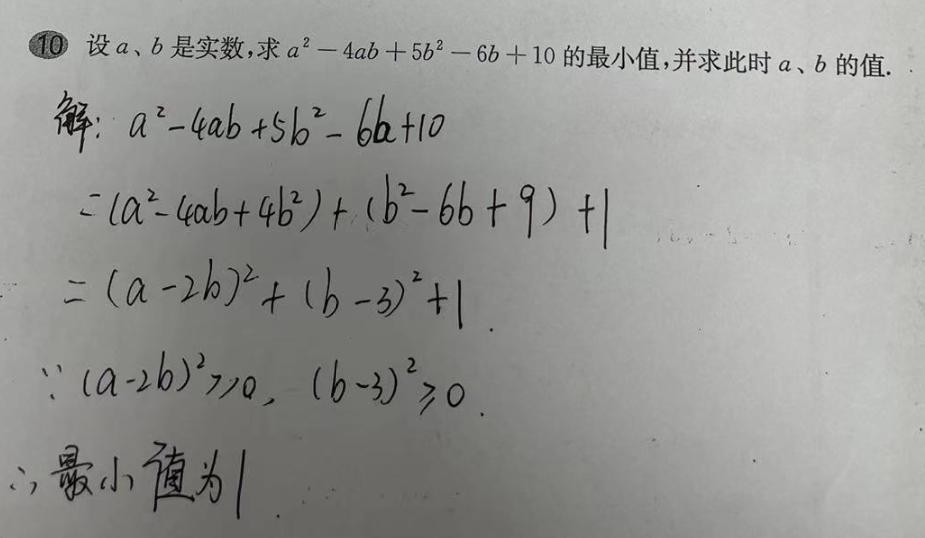 10 设a、b是实数,求a²-4ab+5b²-6b+10的最小值,并求此时a、b的值.
解: a²-4ab+5b²-6b+10
=(a²-4ab+4b²)+(b²-6b+9)+1
=(a-2b)²+(b-3)²+1.
∵(a-2b)²≥0, (b-3)²≥0.
∴最小值为1.